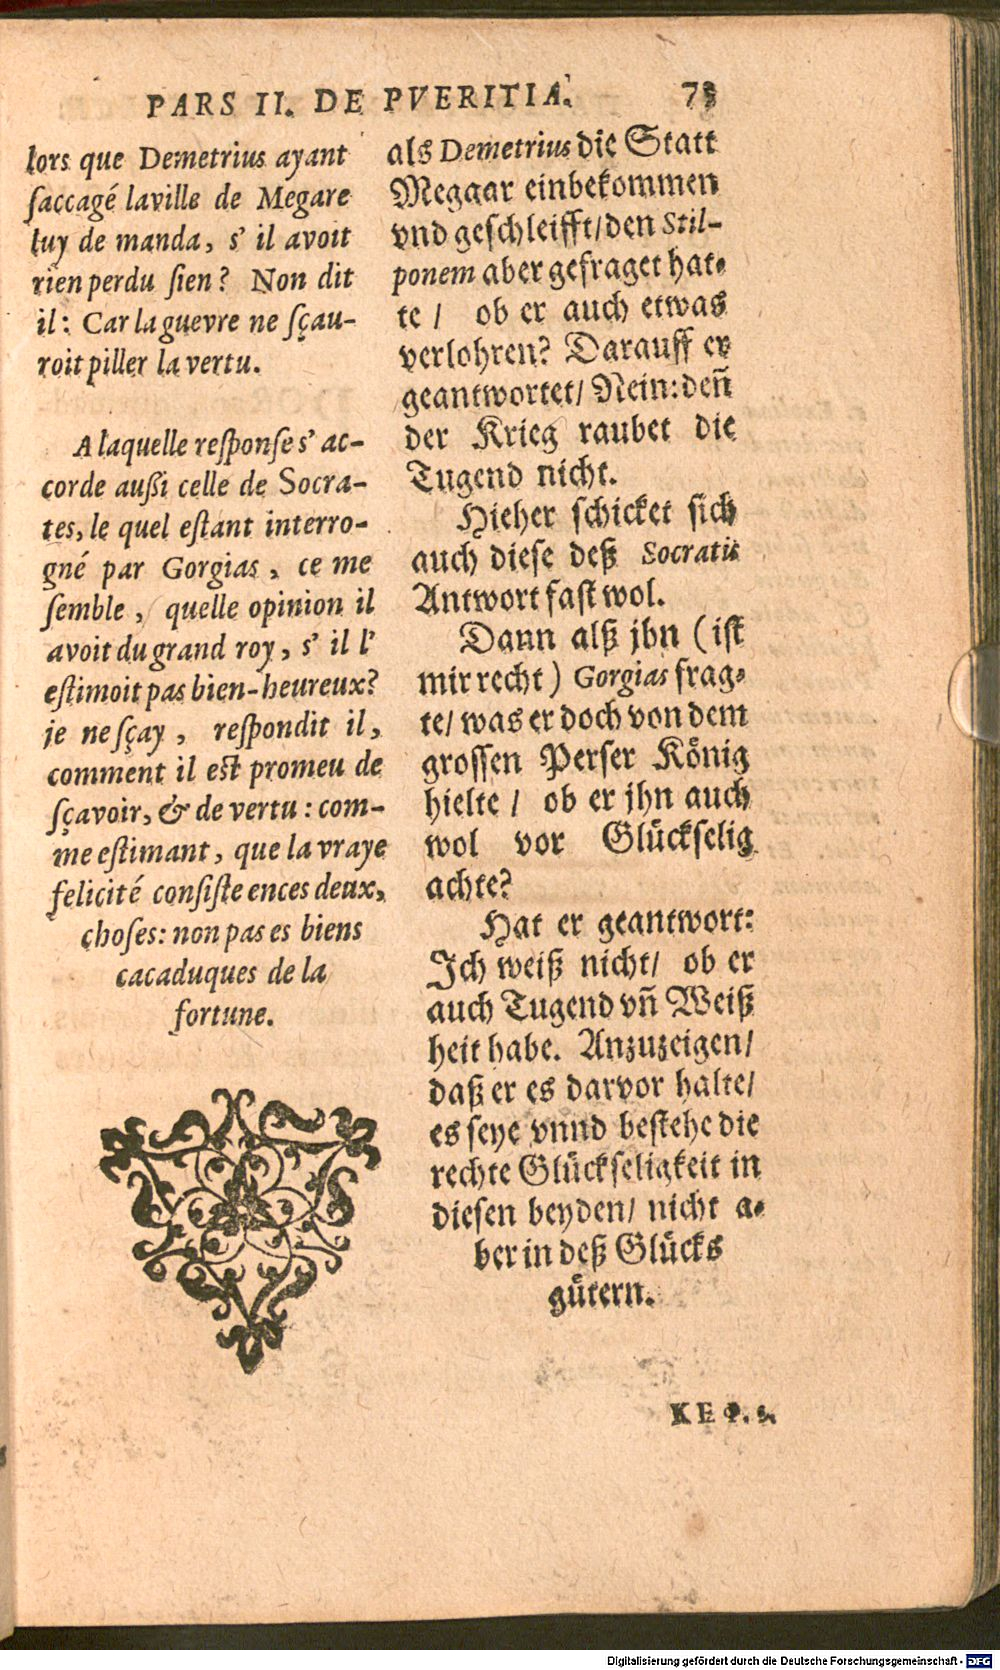 PARS II. DE PVERITIA. 73
lors que Demetrius ayant
ſaccagé laville de Megare
luy de manda, s' il avoit
rien perdu ſien? Non dit
il: Car la guevre ne ſçau-
roit piller la vertu.
A laquelle reſponſe s' ac-
corde außi celle de Socra-
tes, le quel eſtant interro-
gné par Gorgias, ce me
ſemble, quelle opinion il
avoit du grand roy, s' il l'
eſtimoit pas bien-heureux?
je ne ſçay, reſpondit il,
comment il eſt promeu de
ſçavoir, & de vertu: com-
me eſtimant, que la vraye
felicité conſiſte ences deux,
choſes: non pas es biens
cacaduques de la
fortune.
als Demetrius die Statt
Meggar einbekommen
vnd geſchleifft/den Stil-
ponem aber gefraget hat-
te/ ob er auch etwas
verlohren? Darauff er
geantwortet/ Nein: deñ
der Krieg raubet die
Tugend nicht.
Hieher ſchicket ſich
auch dieſe deß Socratis
Antwort faſt wol.
Dann alß jhn (iſt
mir recht) Gorgias frag-
te/ was er doch von dem
groſſen Perſer König
hielte/ ob er jhn auch
wol vor Glückſelig
achte?
Hat er geantwort:
Ich weiß nicht/ ob er
auch Tugend vñ Weiß
heit habe. Anzuzeigen/
daß er es darvor halte/
es ſeye vnnd beſtehe die
rechte Glückſeligkeit in
dieſen beyden/ nicht a-
ber in deß Glücks
gütern.
Digitalisierung gefördert durch die Deutsche Forschungsgemeinschaft - DFG